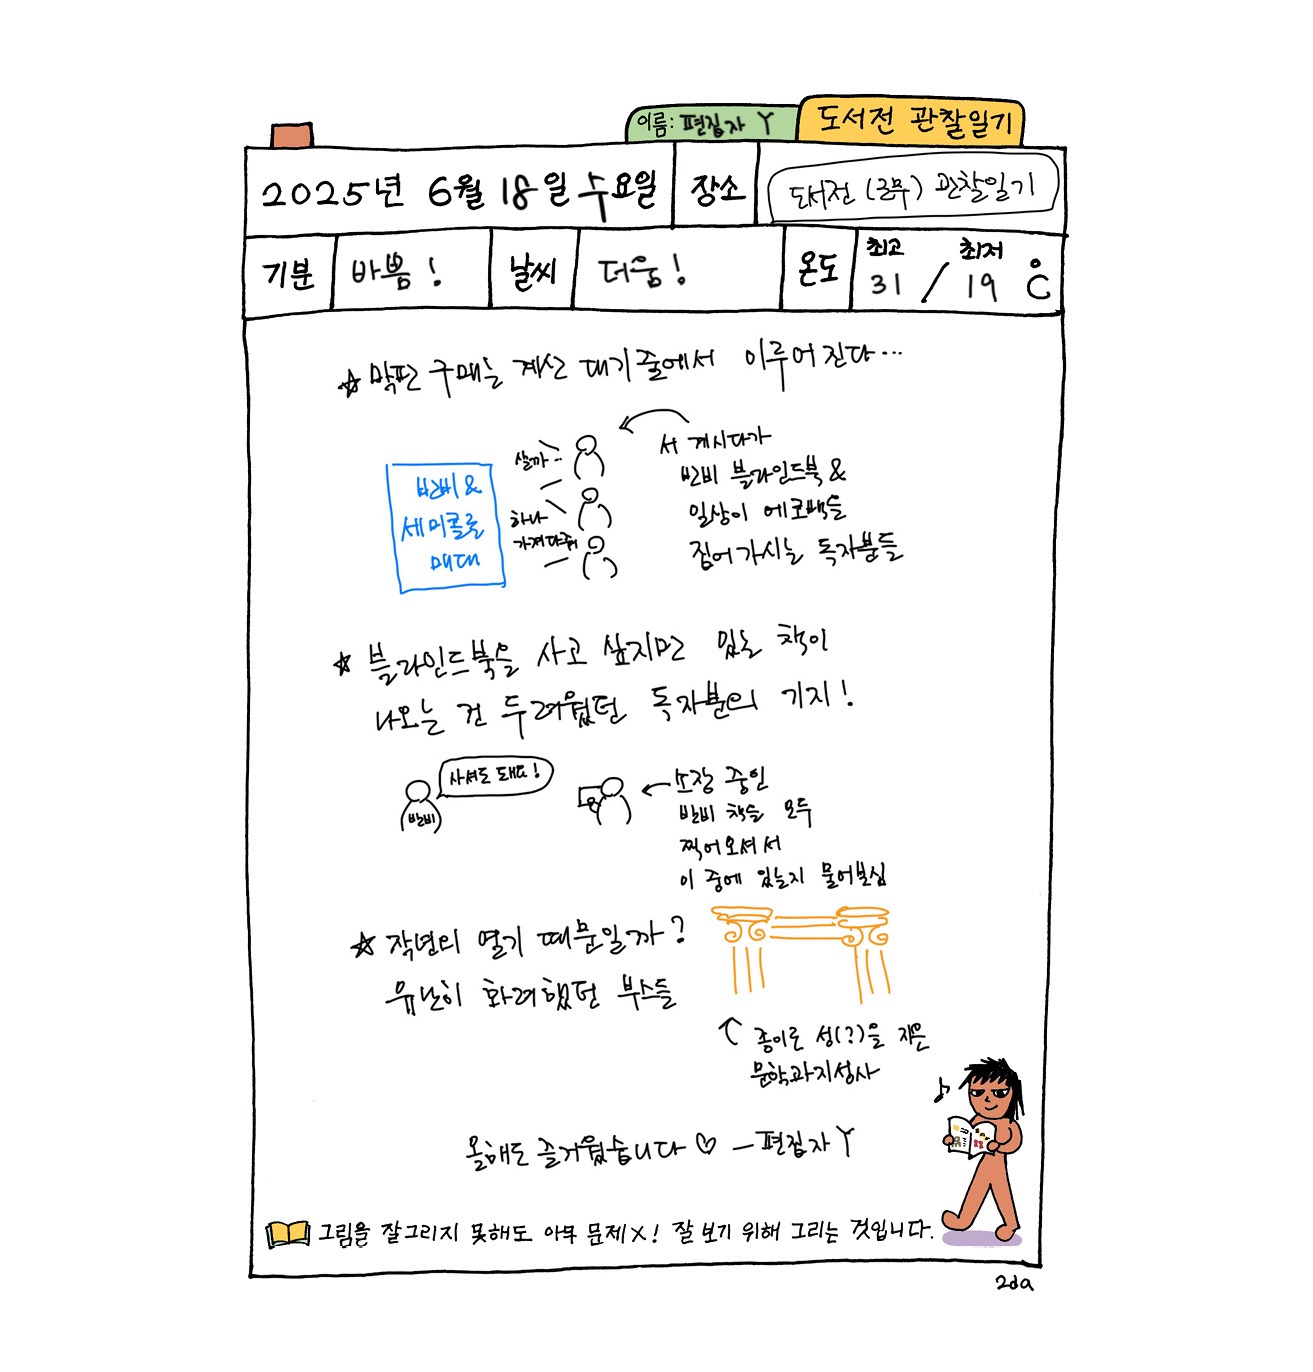 이름: 편집자 Y
도서전 관찰일기
2025년 6월 18일 수요일
장소
도서전 (근무) 관찰일기
기분
바쁨!
날씨
더움!
온도
최고
31
/
최저
19
℃
☆ 막판 구매는 계산 대기줄에서 이루어진다...
살까..
하나
가져다줘
반비 &
세미콜론
매대
서 계시다가
반비 블라인드북 &
일상이 에코백을
집어가시는 독자분들
☆ 블라인드북을 사고 싶지만 있는 책이
나오는 건 두려웠던 독자분의 기지!
사셔도 돼요!
반비
소장 중인
반비 책을 모두
찍어오셔서
이 중에 있는지 물어보심
☆ 작년의 열기 때문일까?
유난히 화려했던 부스들
종이로 성(?)을 지은
문학과지성사
올해도 즐거웠습니다 ♡ — 편집자 Y
그림을 잘그리지 못해도 아무 문제 X! 잘 보기 위해 그리는 것입니다.
2da